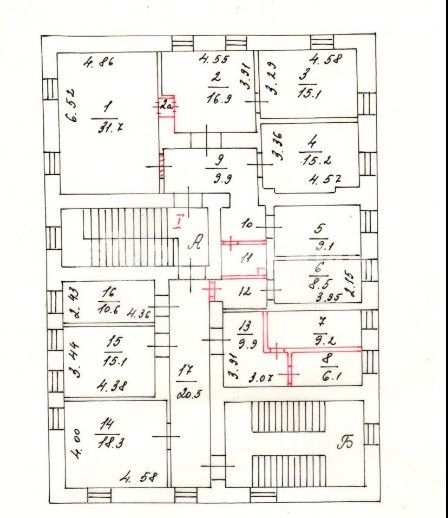 4.86
4.55
4.58
6.52
1
31.7
2а
2
16.9
3.91
3.29
3
15.1
3.36
4
15.2
4.57
9
9.9
I
А
10
11
12
5
9.1
6
8.5
3.95
2.15
2.43
16
10.6
4.36
3.44
15
15.1
4.38
17
20.5
13
9.9
3.91
3.07
7
9.2
8
6.1
4.00
14
18.3
4.58
Б